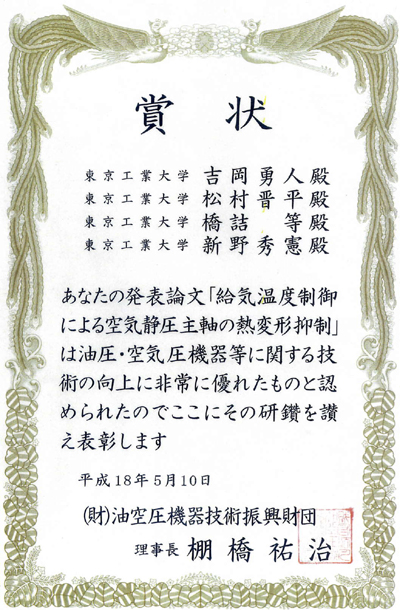 賞状
東京工業大学 吉岡勇人殿
東京工業大学 松村晋平殿
東京工業大学 橋詰 等殿
東京工業大学 新野秀憲殿
あなたの発表論文「給気温度制御
による空気静圧主軸の熱変形抑制」
は油圧・空気圧機器等に関する技
術の向上に非常に優れたものと認
められたのでここにその研鑽を讃
え表彰します
平成18年5月10日
(財)油空圧機器技術振興財団
理事長 棚橋祐治